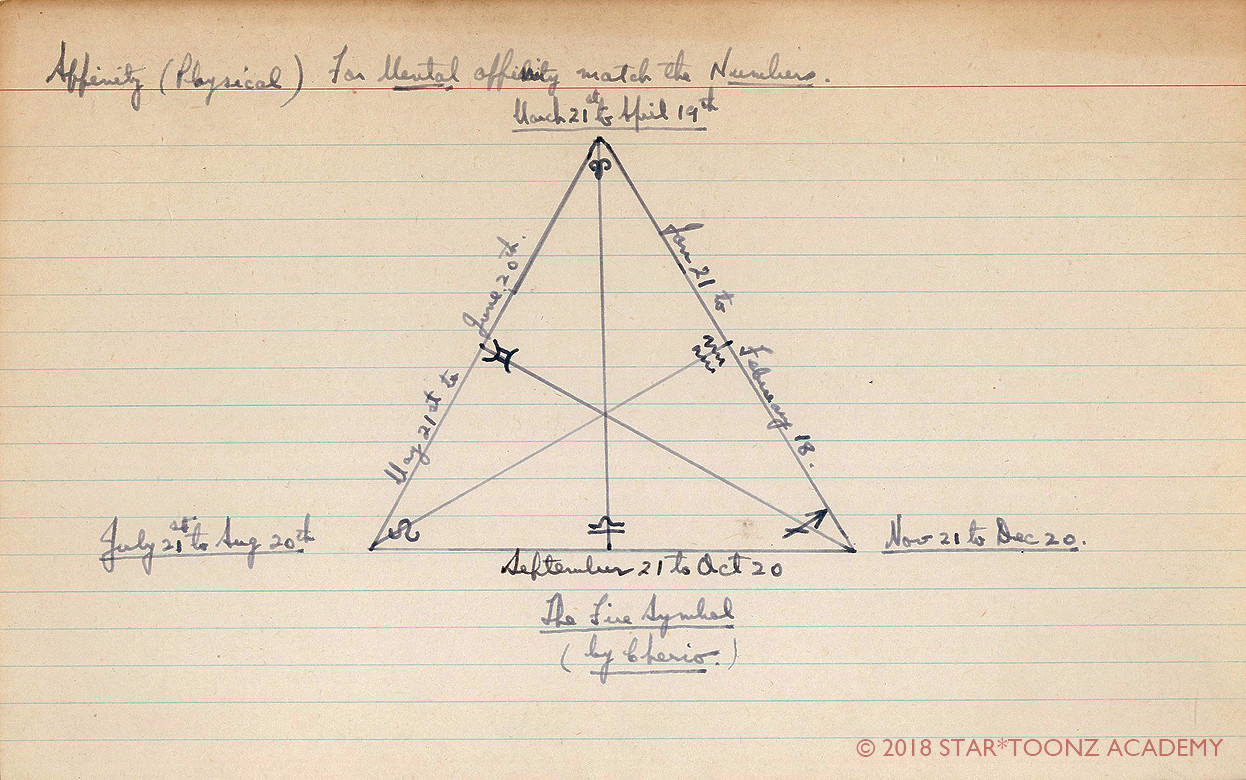 Affinity (Physical) For Mental affinity match the Numbers.
March 21st to April 19th
May 21st to June 20th.
Jan 21 to February 18.
July 21st to Aug 20th
Nov 21 to Dec 20.
September 21 to Oct 20
The Fire Symbol
(by Cherio.)
© 2018 STAR*TOONZ ACADEMY